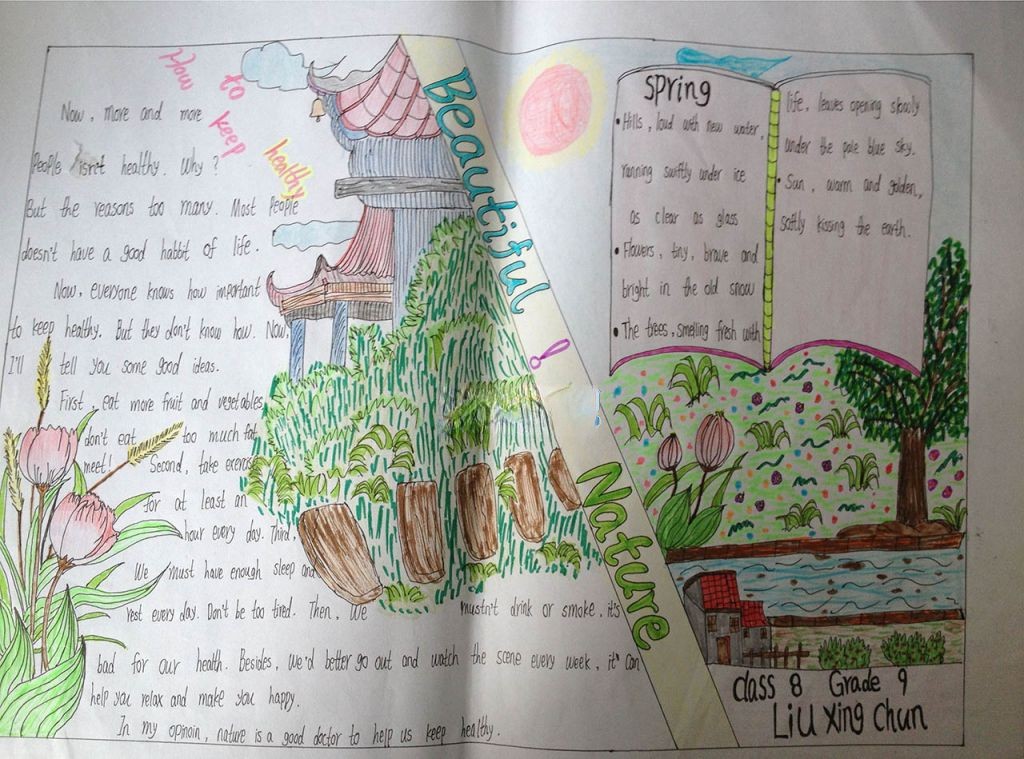 How to keep healthy
Now, more and more
People isn't healthy. Why?
But the reasons too many. Most People
doesn't have a good habbit of life.
Now, everyone knows how important
to keep healthy. But they don't know how. Now,
I'll tell you some good ideas.
First, eat more fruit and vegetables,
don't eat too much fat
meet! Second, take exercise
for at least an
hour every day. Third,
We must have enough sleep and
rest every day. Don't be too tired. Then, we mustn't drink or smoke, it's
bad for our health. Besides, we'd better go out and watch the scene every week, it can
help you relax and make you happy.
In my opinoin, nature is a good doctor to help us keep healthy.
Beautiful ! Nature
Spring
• Hills, loud with new water,
running swiftly under ice
as clear as glass
• Flowers, tiny, brave and
bright in the old snow
• The trees, smelling fresh with
life, leaves opening slowly
under the pale blue sky.
• Sun, warm and golden,
softly kissing the earth.
Class 8 Grade 9
Liu Xing Chun